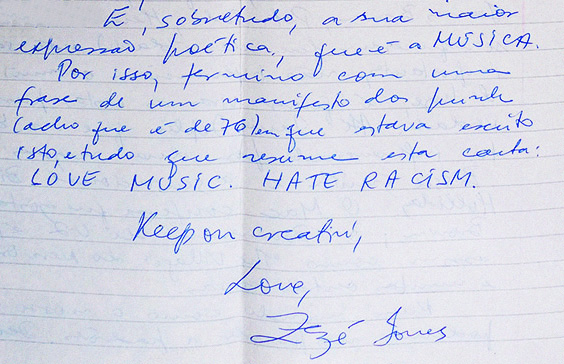 E, sobretudo, a sua maior
expressão poética, que é a MÚSICA.
Por isso, termino com uma
frase de um manifesto dos punk
(acho que é de 76) em que estava escrito
isto, e tudo que resume esta carta:
LOVE MUSIC. HATE RACISM.
Keep on creativi,
Love,
Zezé Jones